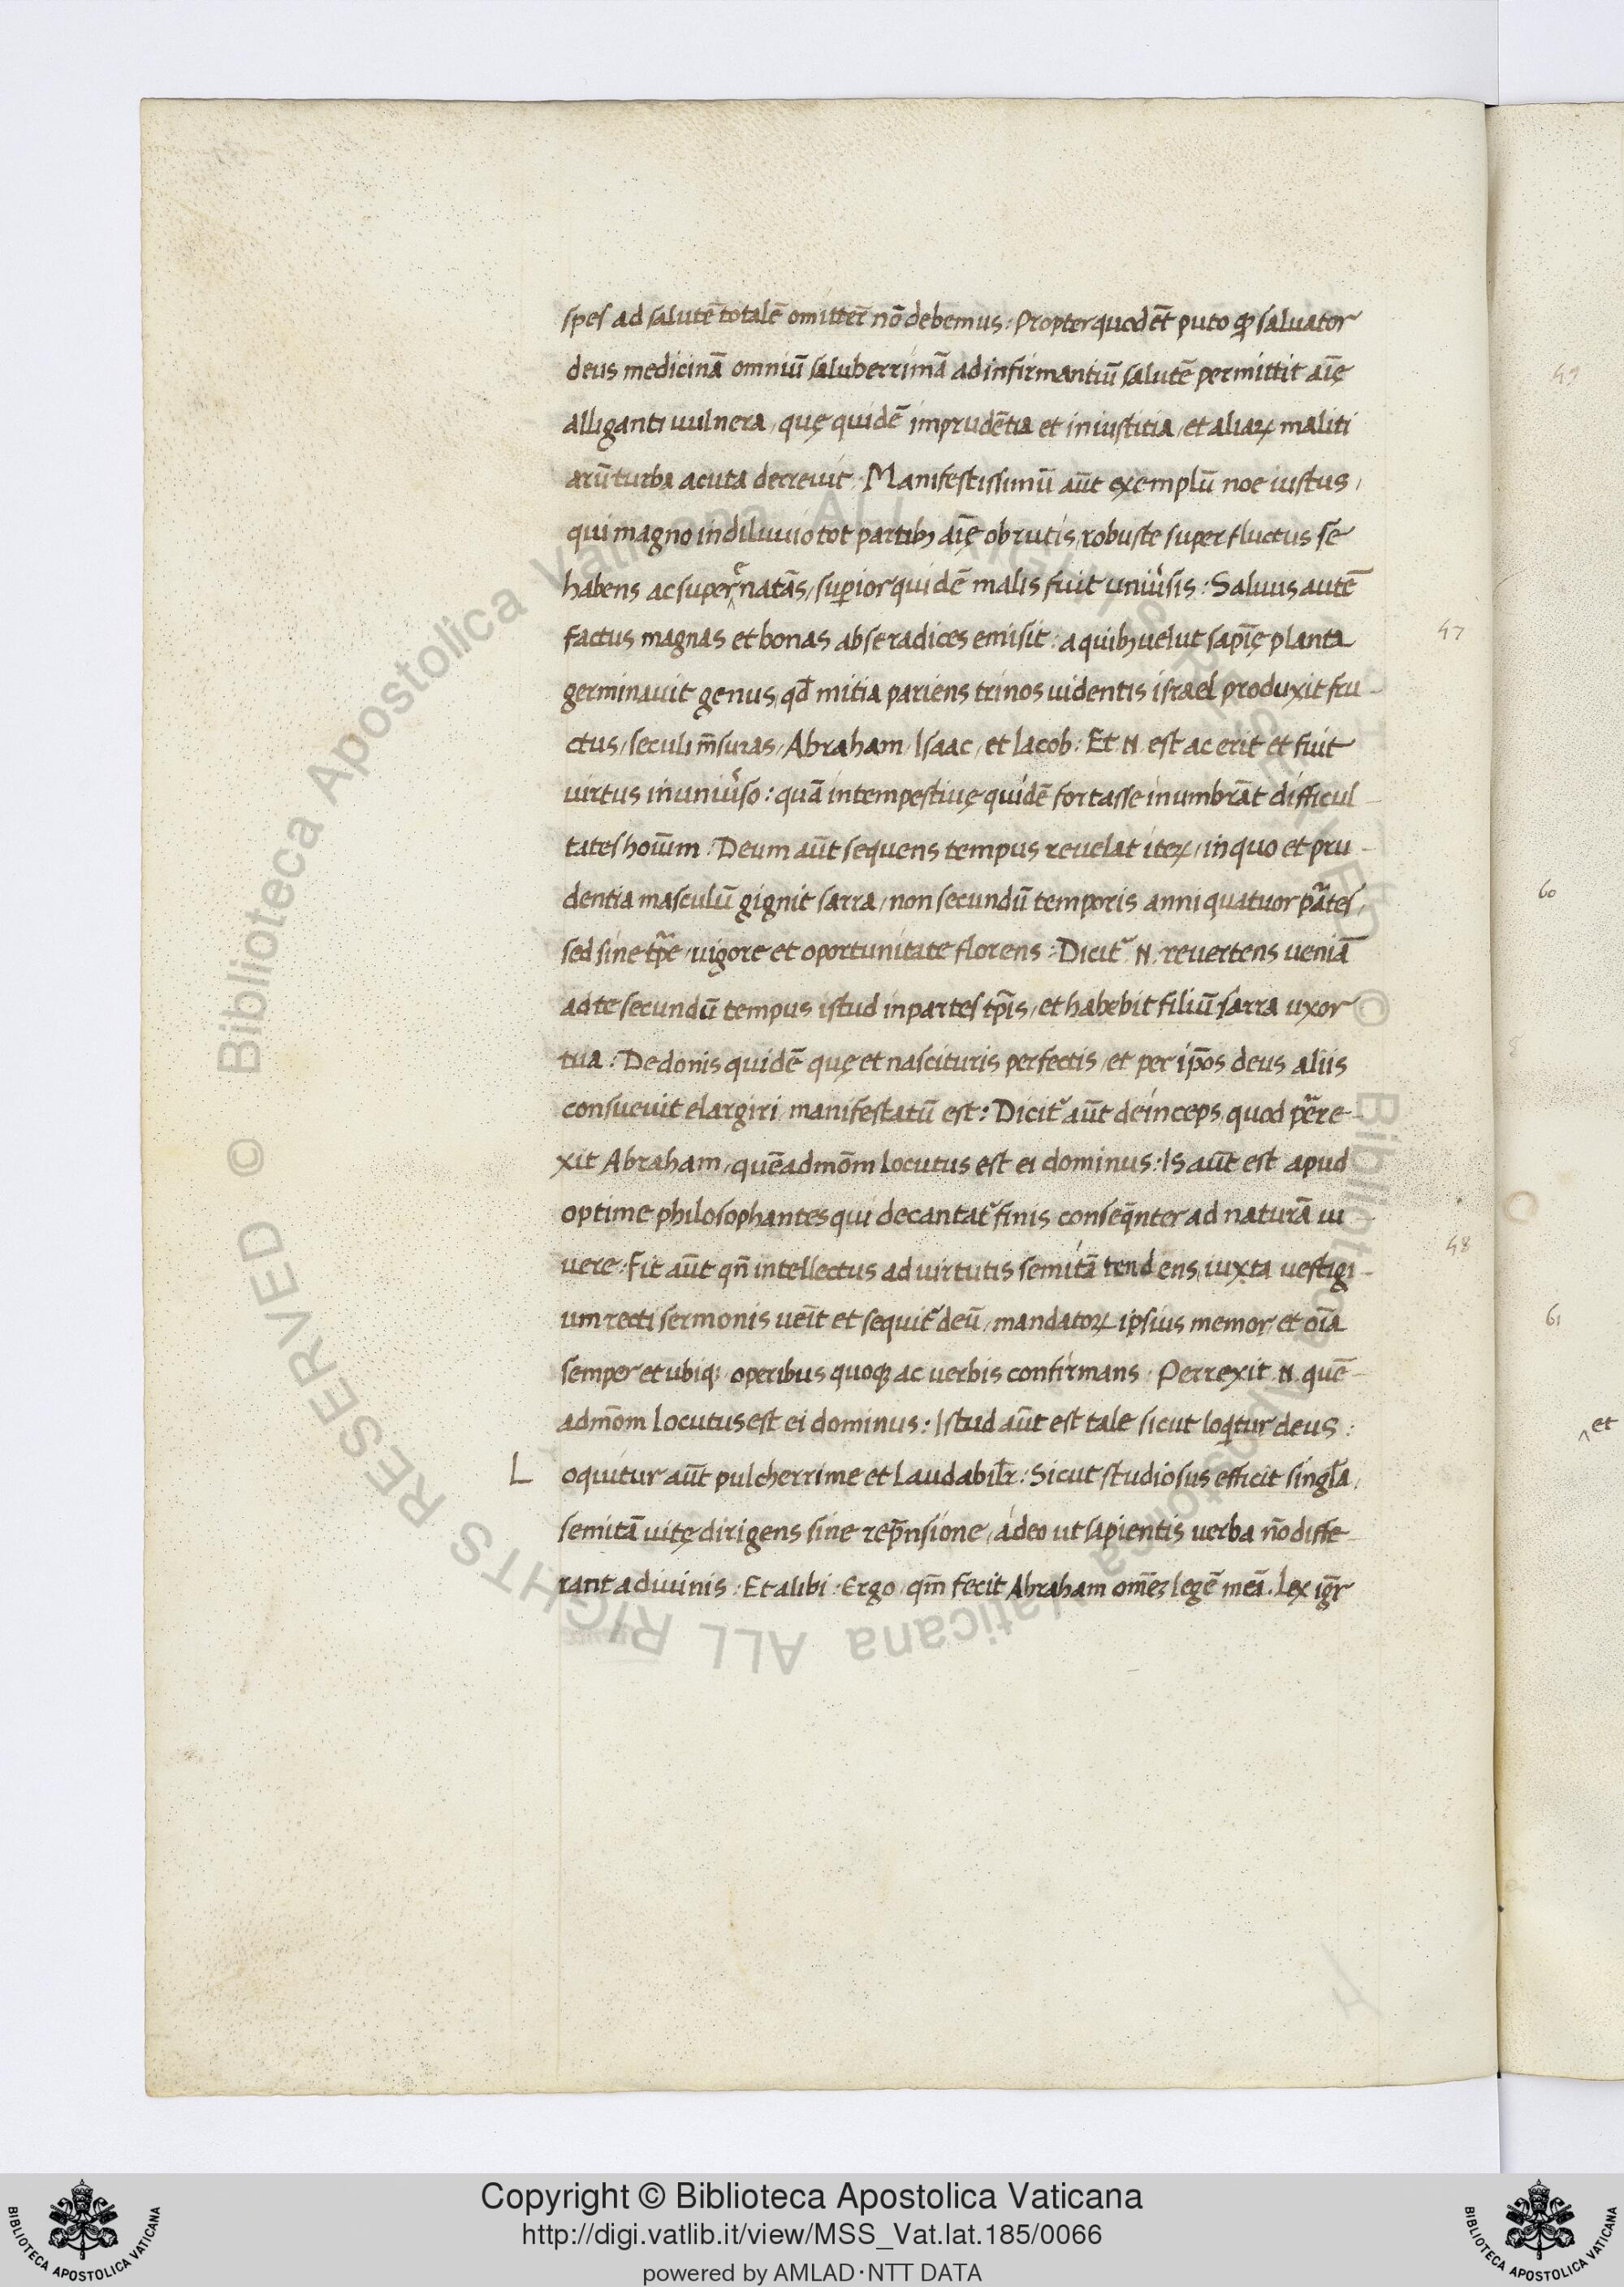 spes ad salutē totalē omitter̄ nō debemus : Propter quod ēt puto ꝙ saluator
deus medicinā omniū saluberrimā ad infirmantiū salutē permittit aīę
alliganti uulnera / quę quidē imprudētia et iniustitia / et aliaꝝ maliti
arū turba acuta decreuit : Manifestissimū aūt exemplū noe iustus /
qui magno in diluuio tot partibꝫ aīę obrutis / robuste super fluctus se
habens ac superenatās / suꝑior quidē malis fuit uniūsis : Saluus autē
factus magnas et bonas ab se radices emisit : a quibꝫ uelut sapīę planta
germinauit genus / qđ mitia pariens trinos uidentis israel produxit fru-
ctus / seculi m̄suras / Abraham / Isaac / et Iacob : Et .N. est ac erit et fuit
uirtus in uniūso : quā intempestiuę quidē fortasse inumbrāt difficul-
tates hoīum : Deum aūt sequens tempus reuelat iteꝝ / in quo et pru-
dentia masculū gignit sarra / non secundū temporis anni quatuor p̄ates /
sed sine tp̄e / uigore et oportunitate florens : Dicit᷑ .N. reuertens ueniā
ad te secundū tempus istud in partes tp̄is / et habebit filiū sarra uxor
tua : De donis quidē quę et nascituris perfectis / et per ip̄os deus aliis
consueuit elargiri / manifestatū est : Dicit᷑ aūt deinceps / quod p̄ere-
xit Abraham / quēadmōm locutus est ei dominus : Is aūt est apud
optime philosophantes qui decantat᷑ finis conseq̄nter ad naturā ui-
uere : Fit aūt qn̄ intellectus ad uirtutis semitā tendens / iuxta uestigi-
um recti sermonis ueīt et sequit᷑ deū / mandatoꝝ ipsius memor / et oīa
semper et ubiqꝫ operibus quoqꝫ ac uerbis confirmans : Perrexit .N. quē-
admōm locutus est ei dominus : Istud aūt est tale sicut loq̄tur deus :
L oquitur aūt pulcherrime et laudabilr̄ : Sicut studiosus efficit singl̄a /
semitā uitę dirigens sine rep̄nsione / adeo ut sapientis uerba nō diffe-
rant a diuinis : Et alibi : Ergo / qm̄ fecit Abraham om̄eꝫ legē meā . Lex igr̄
49
47
60
8
48
61
et
Copyright © Biblioteca Apostolica Vaticana
http://digi.vatlib.it/view/MSS_Vat.lat.185/0066
powered by AMLAD·NTT DATA
© Biblioteca Apostolica Vaticana ALL RIGHTS RESERVED
© Biblioteca Apostolica Vaticana ALL RIGHTS RESERVED
BIBLIOTECA APOSTOLICA VATICANA
BIBLIOTECA APOSTOLICA VATICANA